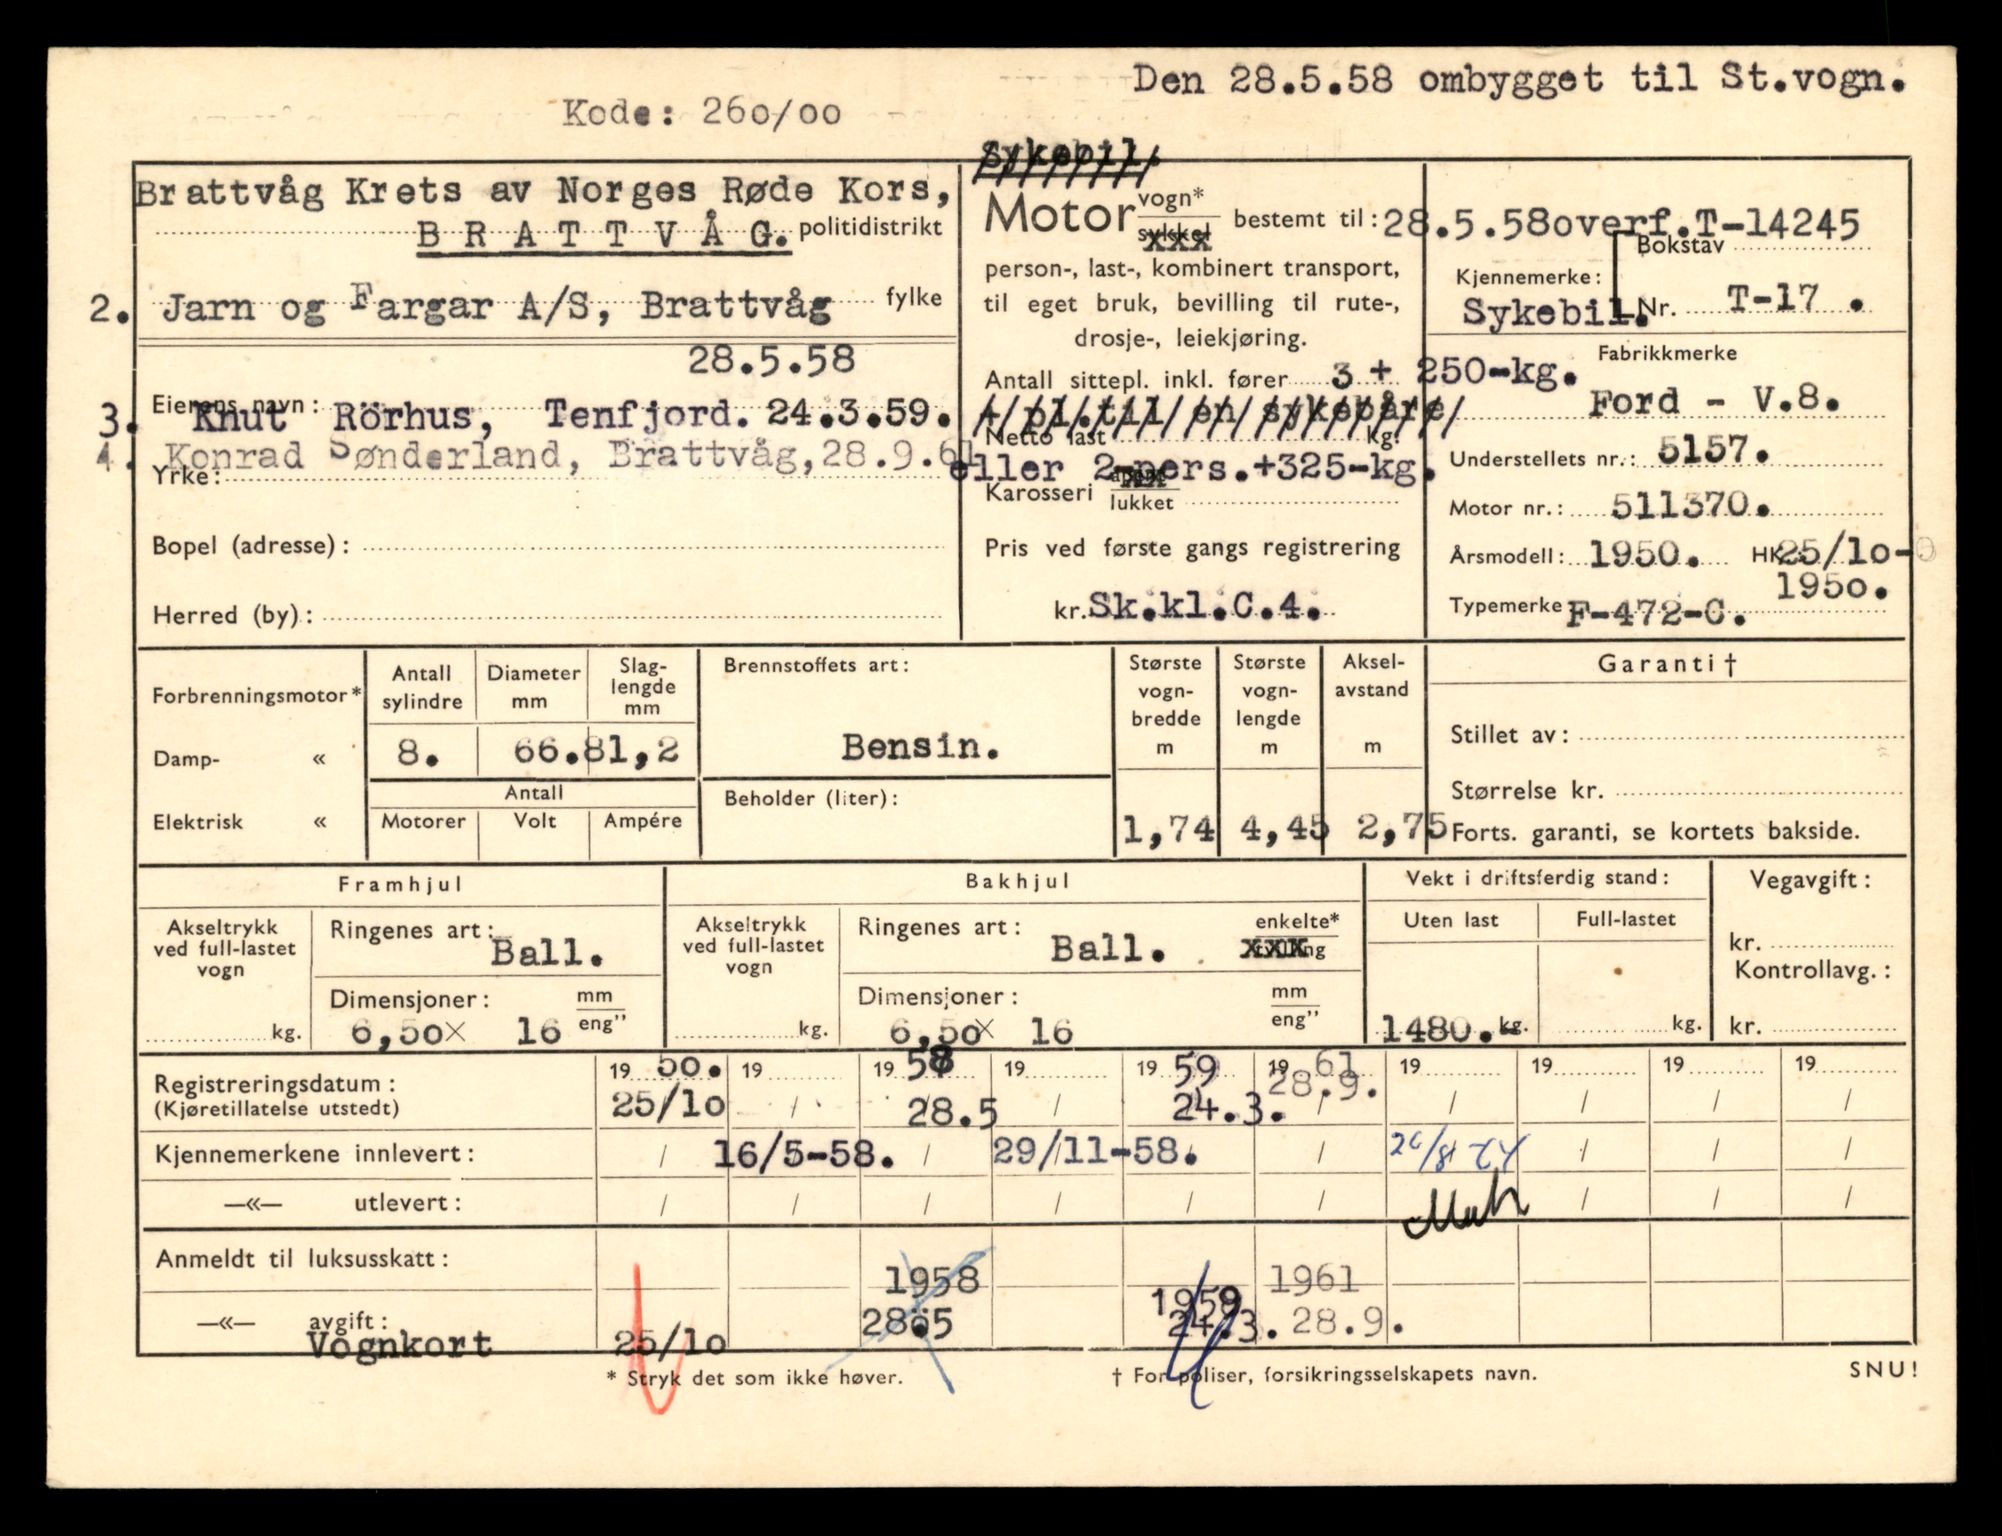 Den 28.5.58 ombygget til St.vogn.
Kode: 260/00
Sykebil.
Brattvåg Krets av Norges Røde Kors,
B R A T T V Å G. politidistrikt
2. Jarn og Fargar A/S, Brattvåg fylke
28.5.58
Eierens navn:
3. Knut Rörhus, Tenfjord. 24.3.59.
4. Konrad Sønderland, Brattvåg, 28.9.61
Yrke:
Bopel (adresse):
Herred (by):
Motor vogn* sykkel bestemt til:
person-, last-, kombinert transport,
til eget bruk, bevilling til rute-,
drosje-, leiekjøring.
Antall sittepl. inkl. fører 3 + 250-kg.
+ pl.til en sykebåre
Netto last Kg.
eller 2-pers.+325-kg.
Karosseri lukket
Pris ved første gangs registrering
kr. Sk.kl.C.4.
28.5.58overf.T-14245
Bokstav
Kjennemerke:
Sykebil. Nr. T-17 .
Fabrikkmerke
Ford - V.8.
Understellets nr.: 5157.
Motor nr.: 511370.
Årsmodell: 1950. HK. 25/10-
1950.
Typemerke F-472-C.
Forbrenningsmotor*
Damp- «
Elektrisk «
Antall sylindre Diameter mm Slag-lengde mm
8. 66. 81,2
Antall
Motorer Volt Ampére
Brennstoffets art:
Bensin.
Beholder (liter):
Største vogn-bredde m Største vogn-lengde m Aksel-avstand m
1,74 4,45 2,75
Garanti†
Stillet av:
Størrelse kr.
Forts. garanti, se kortets bakside.
Framhjul
Akseltrykk ved full-lastet vogn
kg.
Ringenes art: Ball.
Dimensjoner: mm eng”
6,50 x 16
Bakhjul
Akseltrykk ved full-lastet vogn
kg.
Ringenes art: Ball. enkelte*
Dimensjoner: mm eng”
6,50 x 16
Vekt i driftsferdig stand:
Uten last Full-lastet
1480.- kg. kg.
Vegavgift:
kr.
Kontrollavg.:
kr.
Registreringsdatum: 19 50. 19 19 58 19 19 59 19 61 19 19 19 19
(Kjøretillatelse utstedt) 25/10 / 28.5 / 24.3. 28.9. / / / /
Kjennemerkene innlevert: / 16/5-58. / 29/11-58. / / / / /
—«— utlevert: / / / / / / / / /
Anmeldt til luksusskatt:
1958 1959 1961
—«— avgift: 28.5 24.3. 28.9.
Vognkort 25/10
* Stryk det som ikke høver.
† For poliser, forsikringsselskapets navn.
SNU!